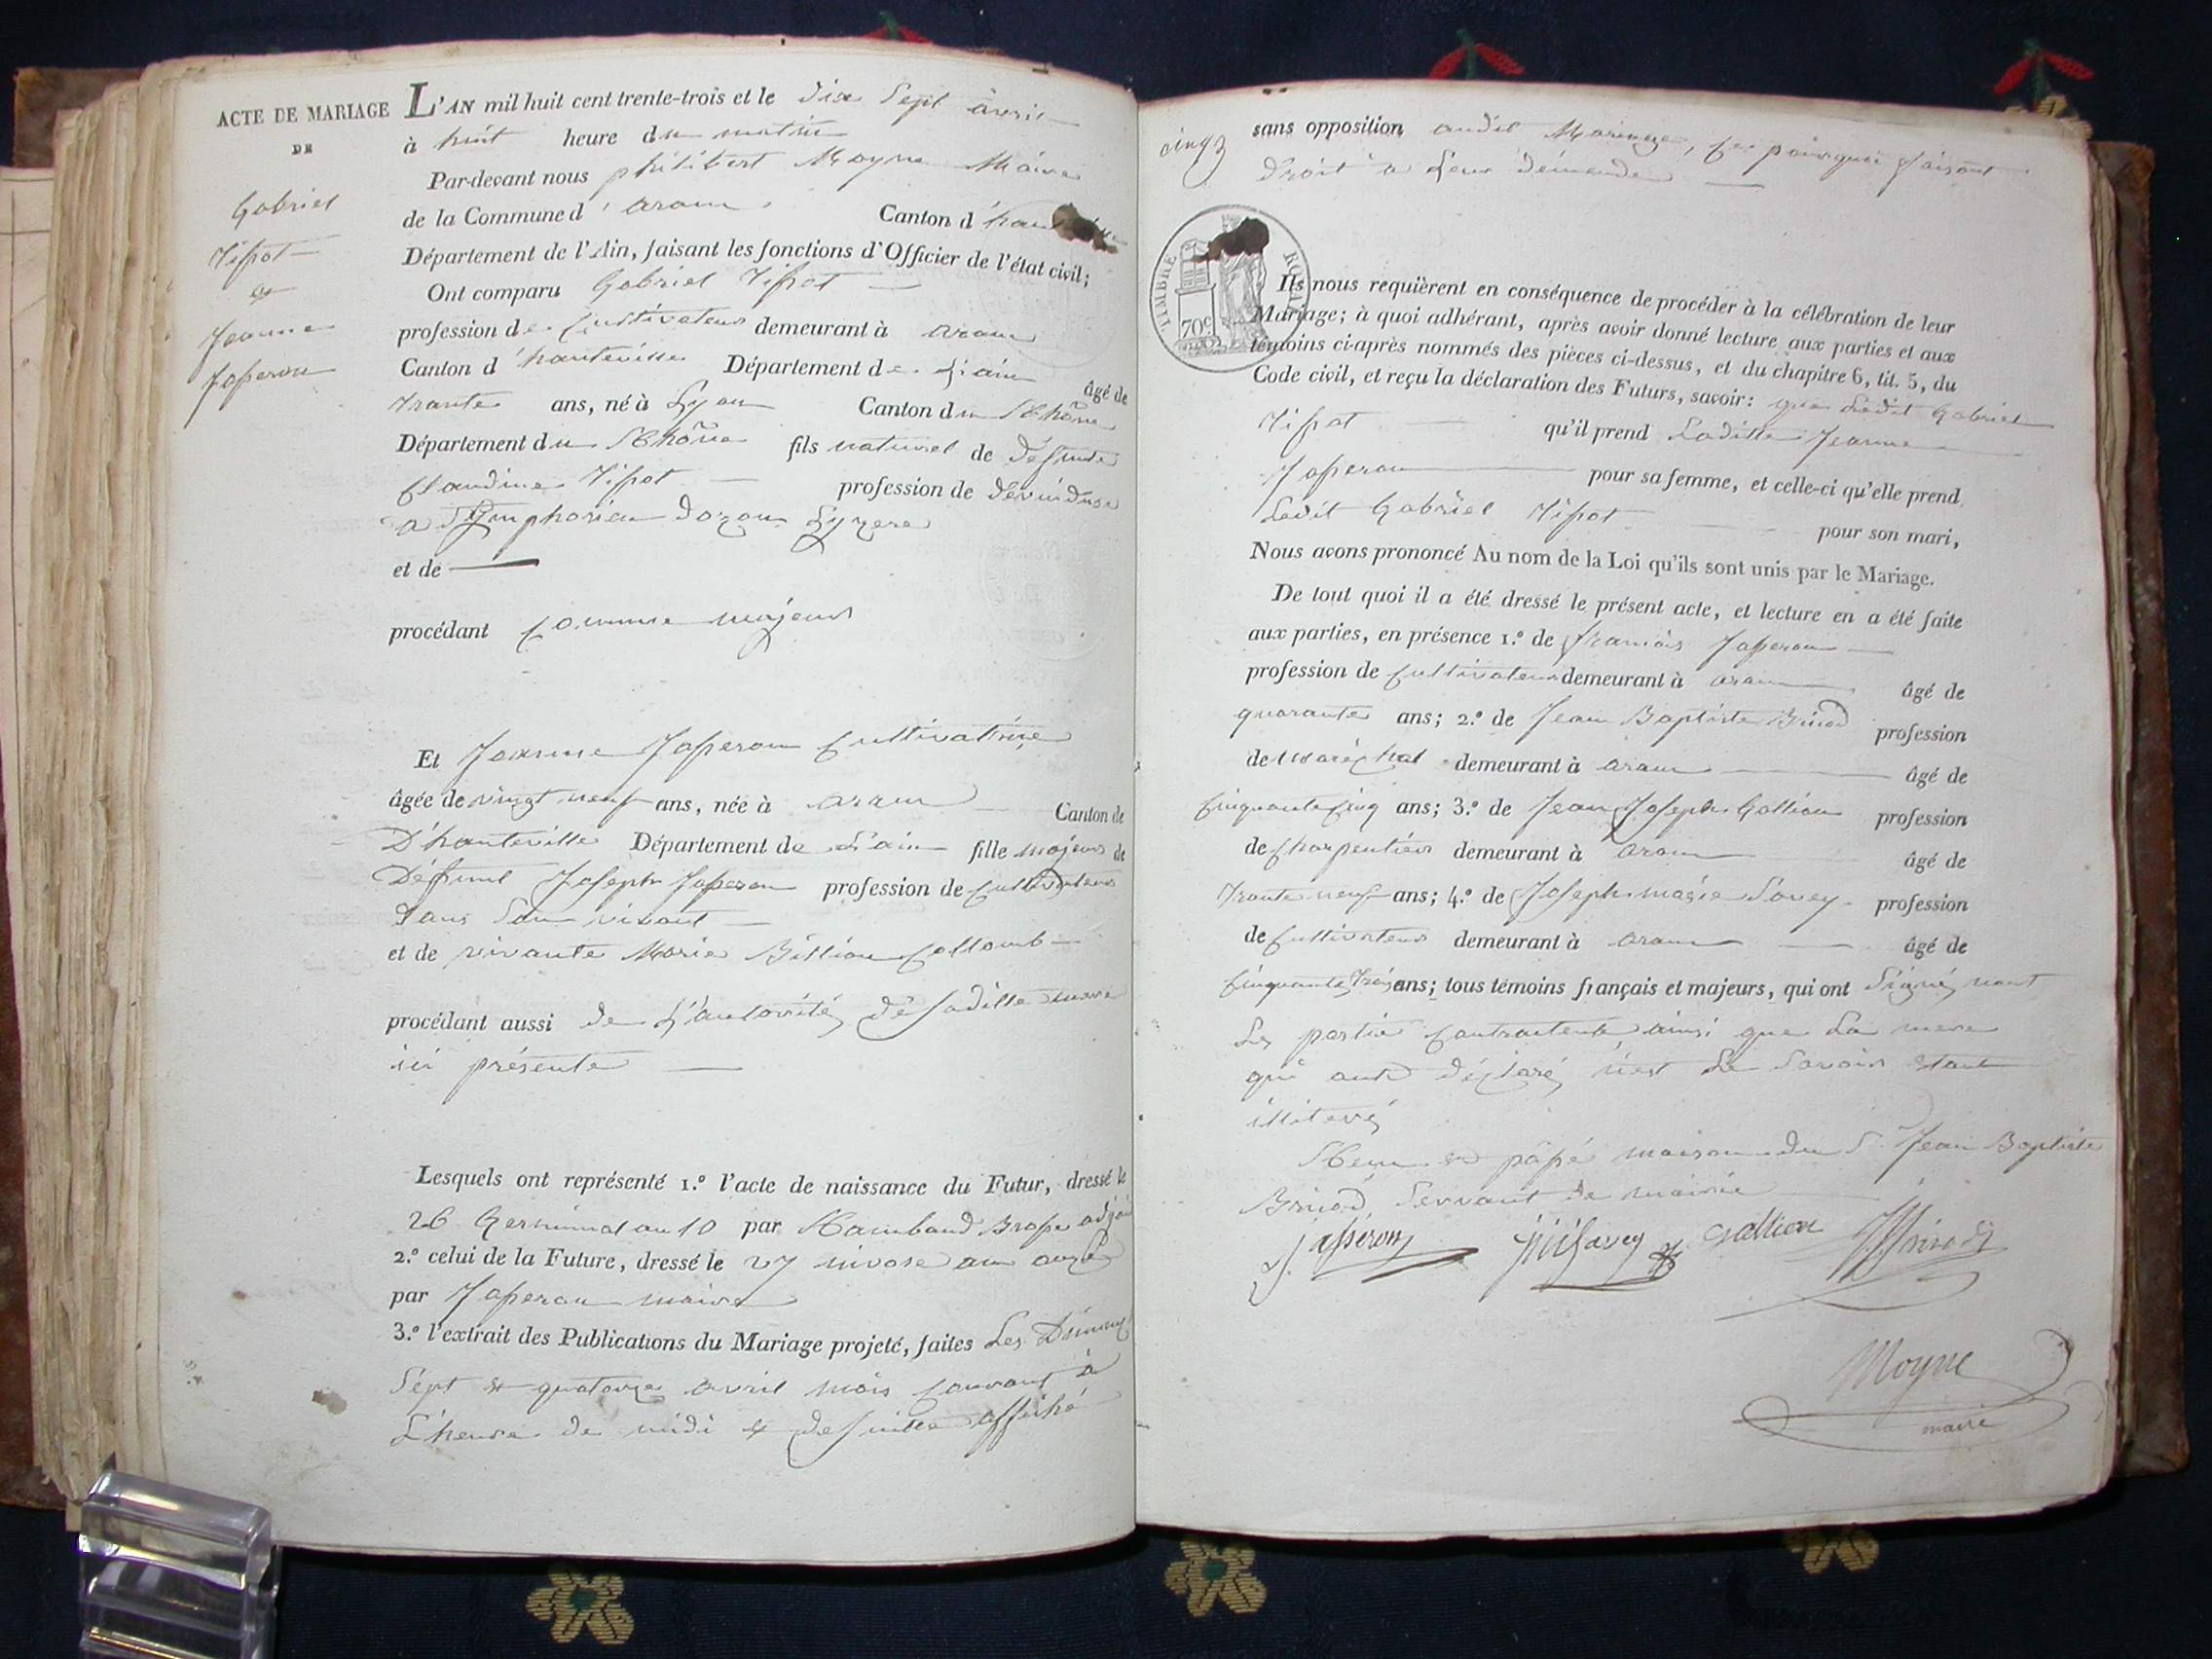 ACTE DE MARIAGE
DE
Gabriel
Tissot
et
Jeanne
Jasseron
L'AN mil huit cent trente-trois et le dix Sept avril
à huit heure du matin
Par-devant nous philibert Moyne Maire
de la Commune d'aranc Canton d'
Département de l'Ain, faisant les fonctions d'Officier de l'état civil;
Ont comparu Gabriel Tissot
profession de Cultivateur demeurant à aranc
Canton d'hauteville Département de L'ain âgé de
Trante ans, né à Lyon Canton du Rhône
Département du Rhône fils naturel de défunte
Claudine Tissot profession de dévideuse
a St Symphorien
et de
procédant comme majeur
Et Jeanne Jasseron Cultivatrice
âgée de vingt neuf ans, née à aranc Canton de
D'hauteville Département de L'ain fille majeur de
Défunt Joseph Jasseron profession de Cultivateur
dans Son vivant
et de vivante Marie Billion Collomb
procédant aussi de L'autorité de Saditte mere
ici présente
Lesquels ont représenté 1.º l'acte de naissance du Futur, dressé le
26 Germinal an 10 par
2.º celui de la Future, dressé le 27 nivose an onze
par Jasseron maire
3.º l'extrait des Publications du Mariage projeté, faites Les
Sept et quatorze avril mois courant à
L'heure de midi et de suitte affiché
cinq
sans opposition audit Mariage, Ce pourquoi faisant
droit a Leur demande
TIMBRE ROYAL
70c
Ils nous requièrent en conséquence de procéder à la célébration de leur
Mariage; à quoi adhérant, après avoir donné lecture aux parties et aux
témoins ci-après nommés des pièces ci-dessus, et du chapitre 6, tit. 5, du
Code civil, et reçu la déclaration des Futurs, savoir: que Ledit Gabriel
Tissot qu'il prend Laditte Jeanne
Jasseron pour sa femme, et celle-ci qu'elle prend
Ledit Gabriel Tissot pour son mari,
Nous avons prononcé Au nom de la Loi qu'ils sont unis par le Mariage.
De tout quoi il a été dressé le présent acte, et lecture en a été faite
aux parties, en présence 1.º de françois Jasseron
profession de Cultivateur demeurant à aranc âgé de
quarante ans; 2.º de Jean Baptiste Briod profession
de maréchal demeurant à aranc âgé de
Cinquante Cinq ans; 3.º de Jean Joseph Gallion profession
de Charpentier demeurant à aranc âgé de
Trante neuf ans; 4.º de Joseph marie Savey profession
de Cultivateur demeurant à aranc âgé de
Cinquante trois ans; tous témoins français et majeurs, qui ont Signé, nont
Les partie Contractente ainsi que La mere
qui ont déclaré n'est Le Savoir etant
illiteré
et passé maison du S. Jean Baptiste
Briod Servant de mairie
J. Jasseron Savey Gallion Briod
Moyne
maire